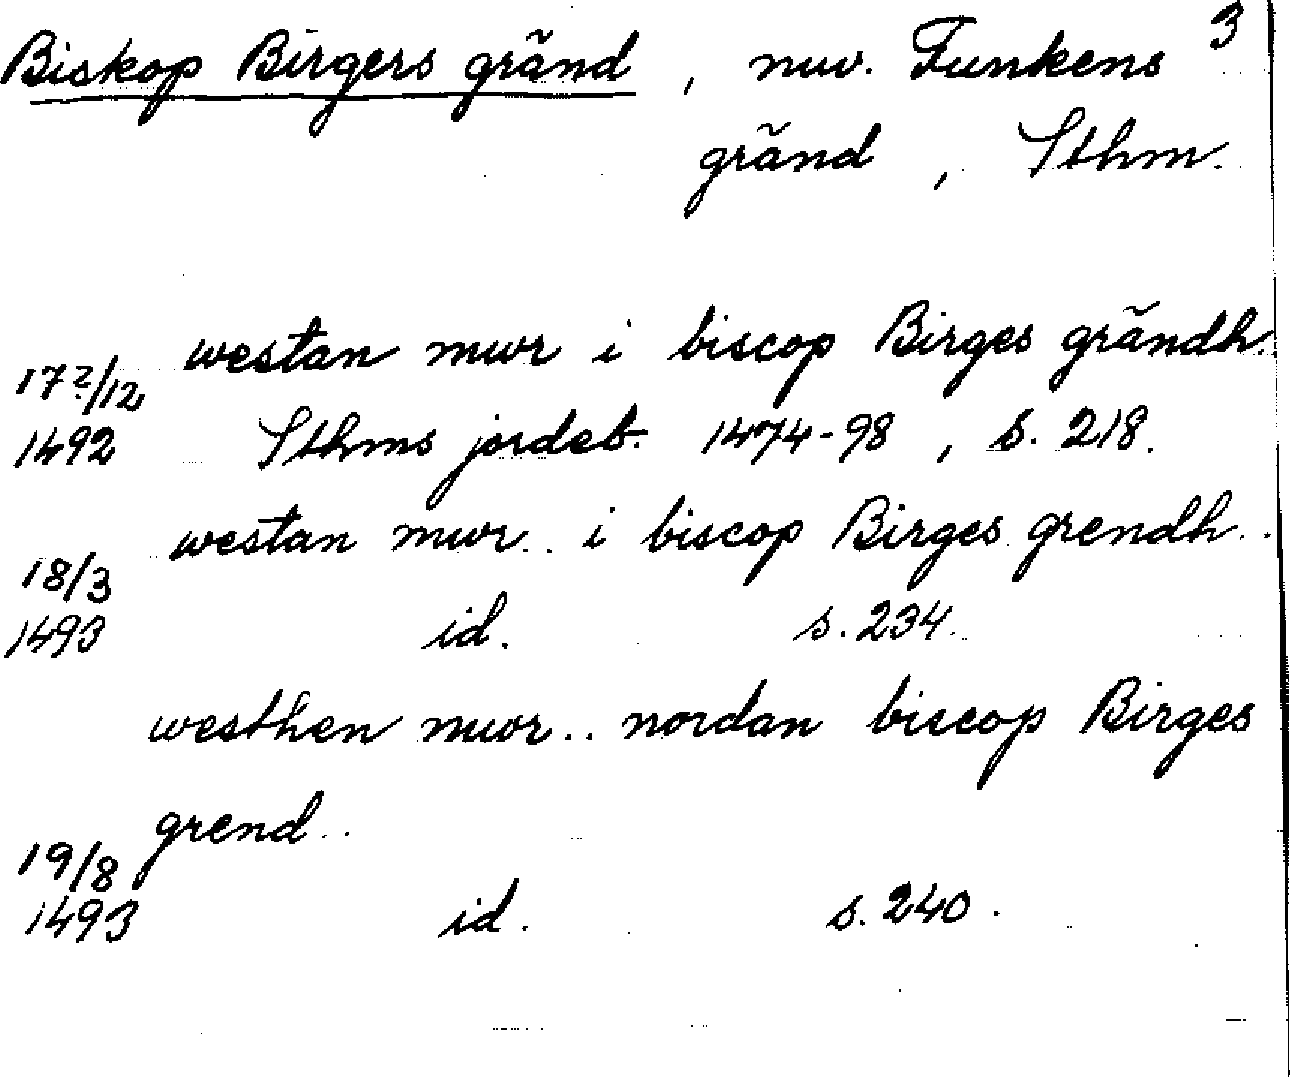 Biskop Birgers gränd, nuv. Funkens 3
gränd, Sthm.
westan mwr i biscop Birges grändh.
17?/12
1492 Sthms jordeb. 1474-98, s. 218.
westan mwr.. i biscop Birges grendh..
18/3
1493 id. s. 234.
westhen mwr.. nordan biscop Birges
grend..
19/8
1493 id. s. 240.